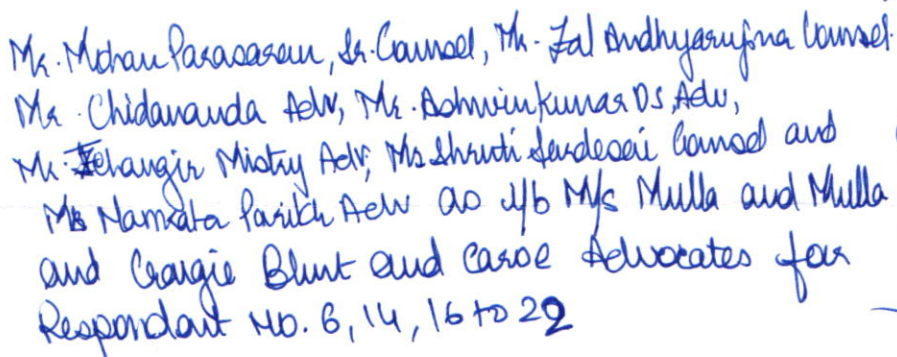 Mr. Mohan Parasaran, Sr. Counsel, Mr. Zal Andhyarujina Counsel.
Mr. Chidananda Adv, Mr. Ashwinkumar DS, Adv,
Mr. Jehangir Mistry Adv, Ms Shruti Sardesai Counsel and
Ms Namrata Parikh Adv as i/b M/s Mulla and Mulla
and Craigie Blunt and Caroe Advocates for
Respondant No. 6, 14, 16 to 22